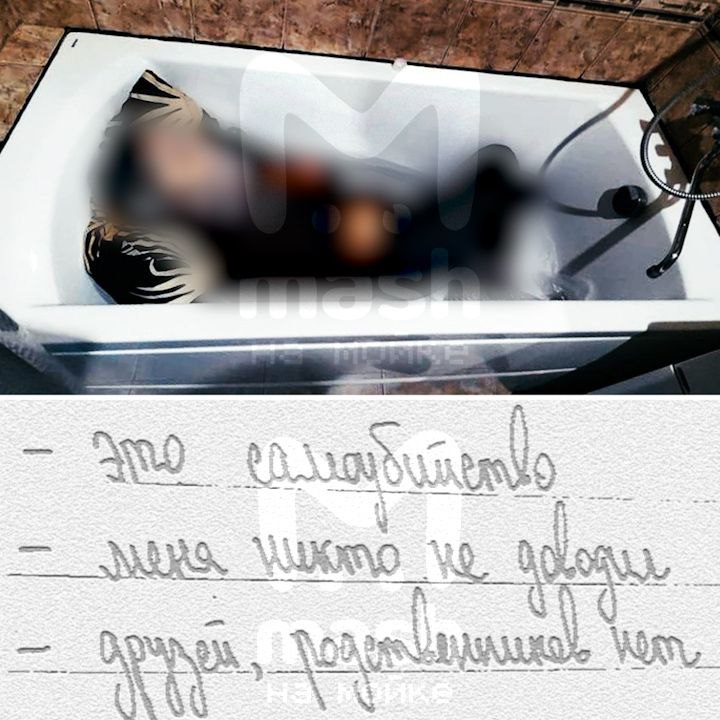 mash
на мойке
- это самоубийство
- меня никто не доводил
- друзей, родственников нет
mash
на мойке